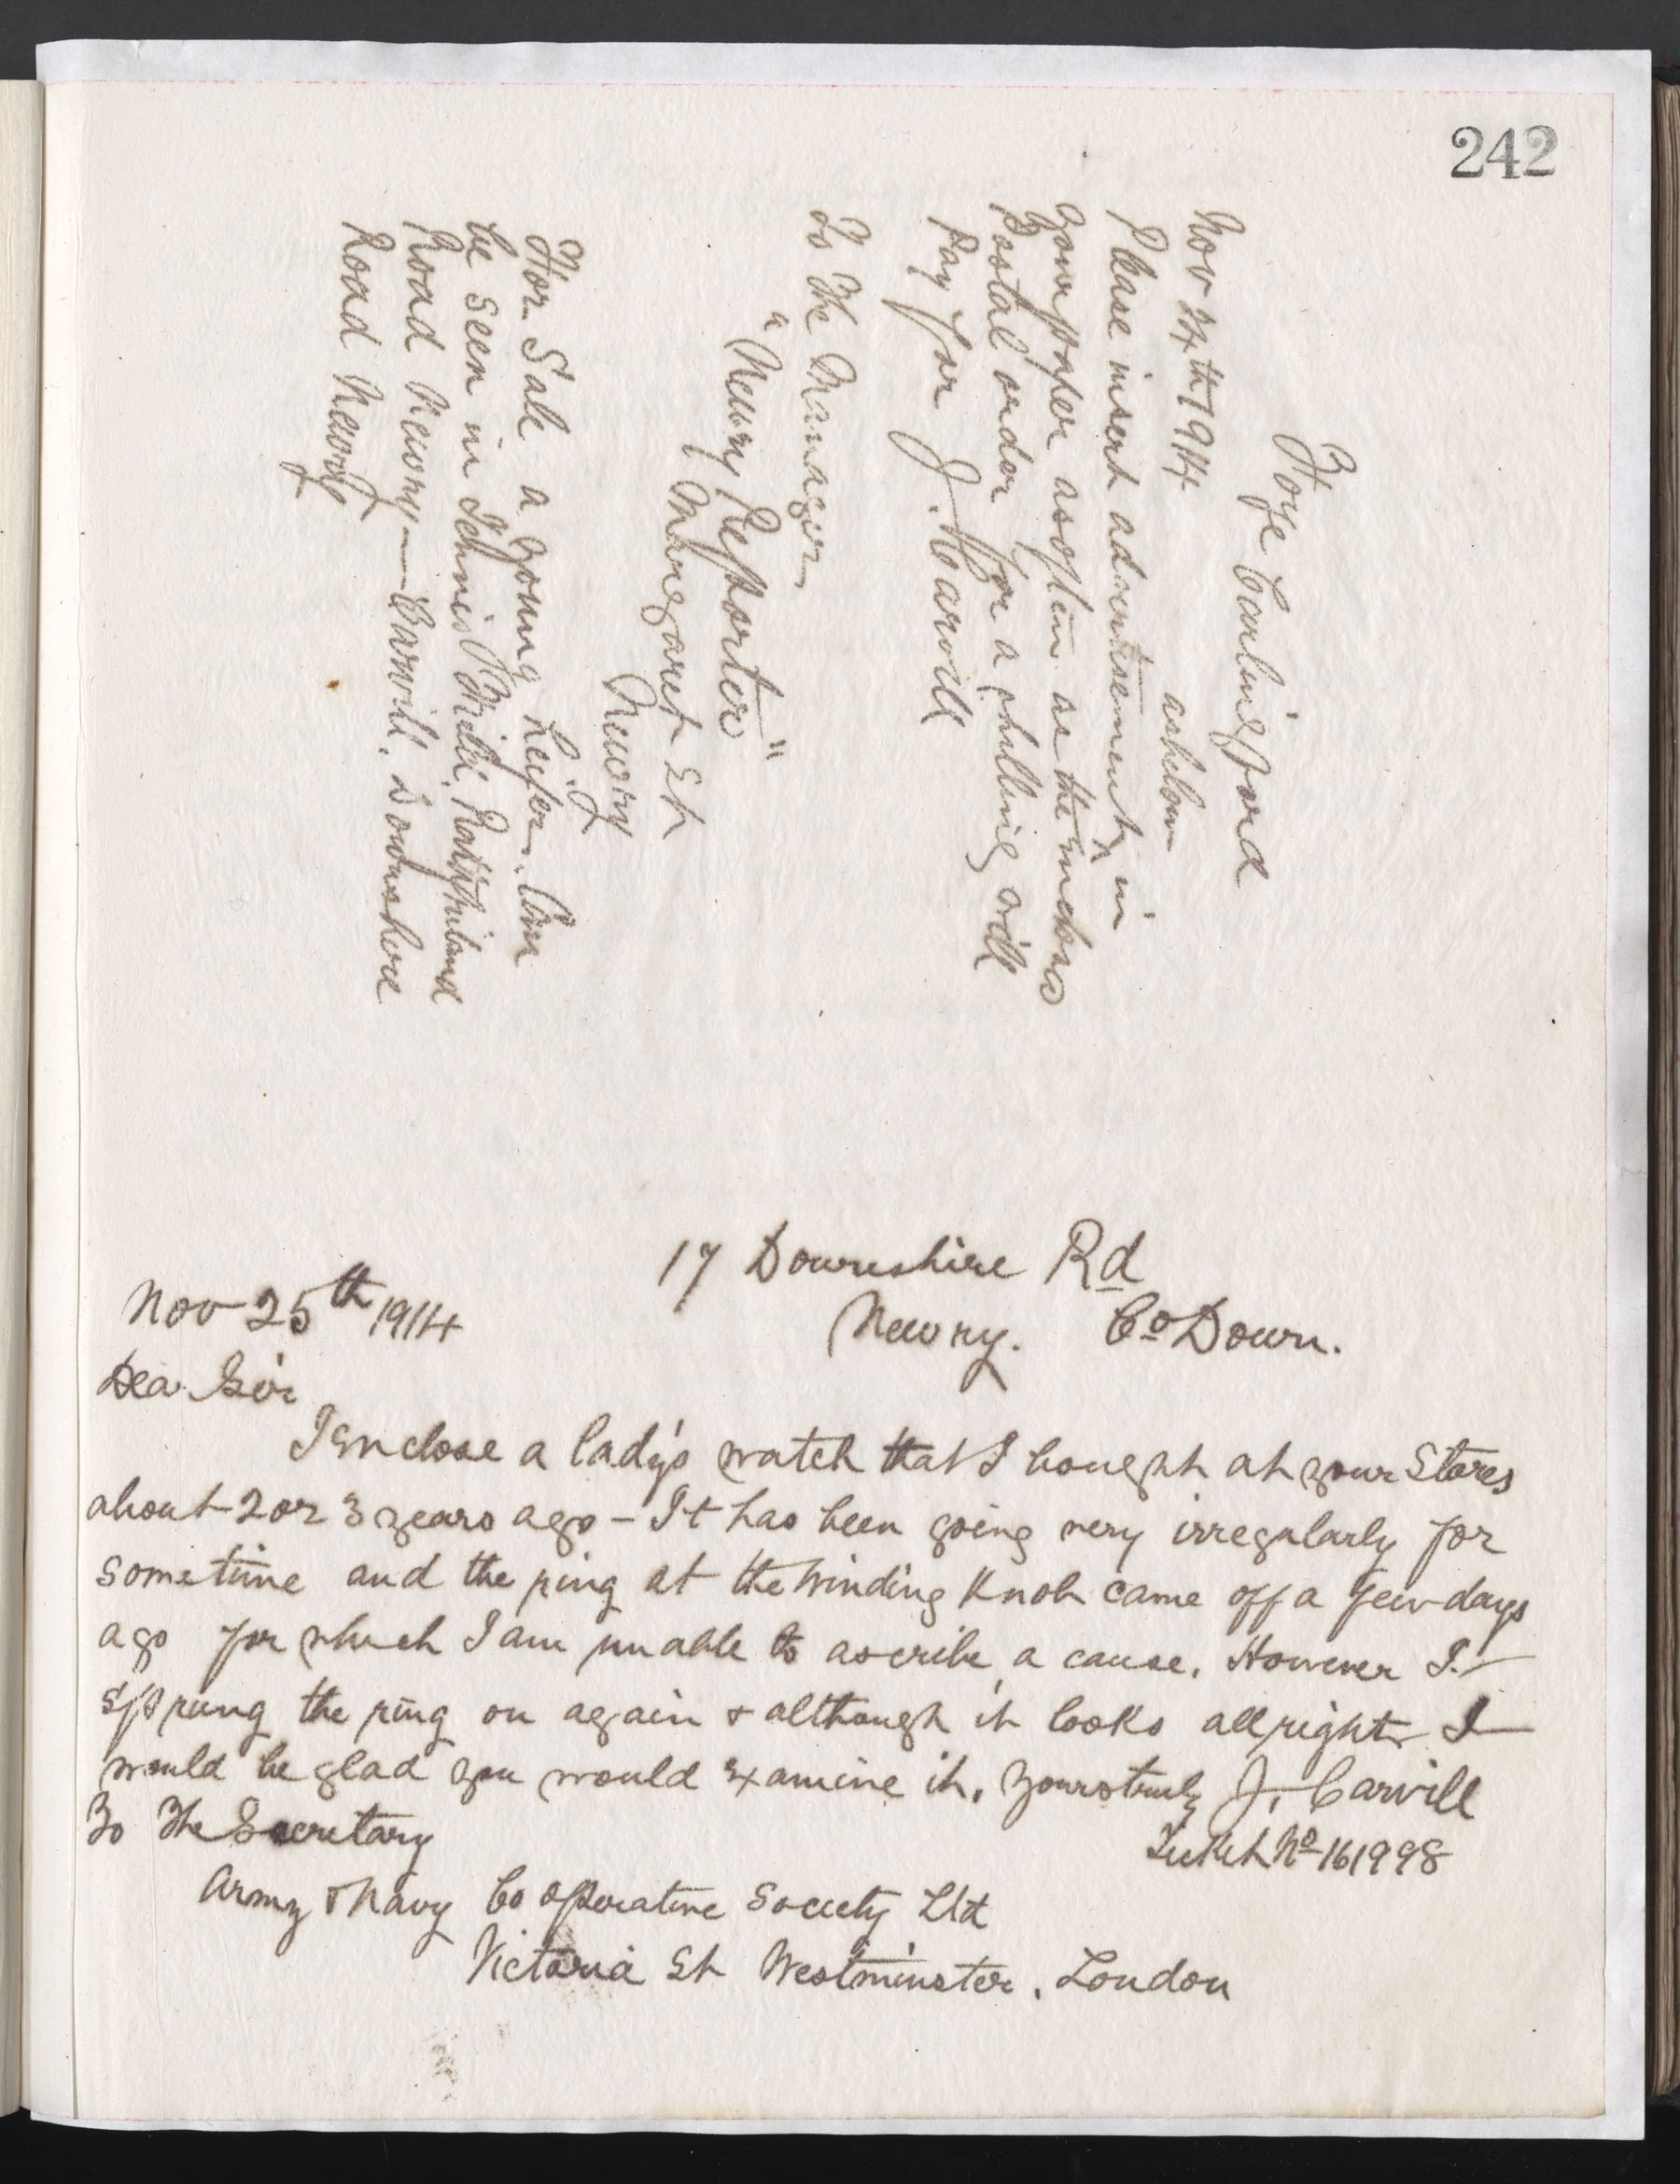 242
Foyе Carlingford
Nov 24th 1914
as below
Please insert advertisement ^ in
your paper as often as the inclosed
Postal order for a shilling will
Pay for J. Carvill
To The Manager
"Newry Reporter"
Margaret St
Newry
For Sale a young heifer. Can
be seen in Tennis Field, Rathfriland
Road Newry — Carvill. Downshire
Road Newry
17 Downshire Rd
Nov 25th 1914
Newry. Co Down.
Dear Sir
I Enclose a lady's watch that I bought at your Stores
about 2 or 3 years ago - It has been going very irregularly for
sometime and the ring at the winding Knob came off a few days
ago for which I am unable to ascribe a cause. However I
sprung the ring on again & although it looks all right I
would be glad you would Examine it. Yours truly J. Carvill
To The Secretary
Ticket No 161998
Army & Navy Co operative Society Ltd
Victoria St Westminster. London